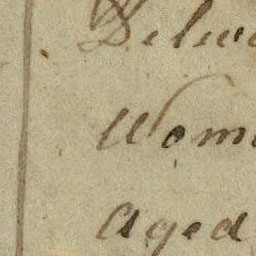 Delive
Wome
Aged